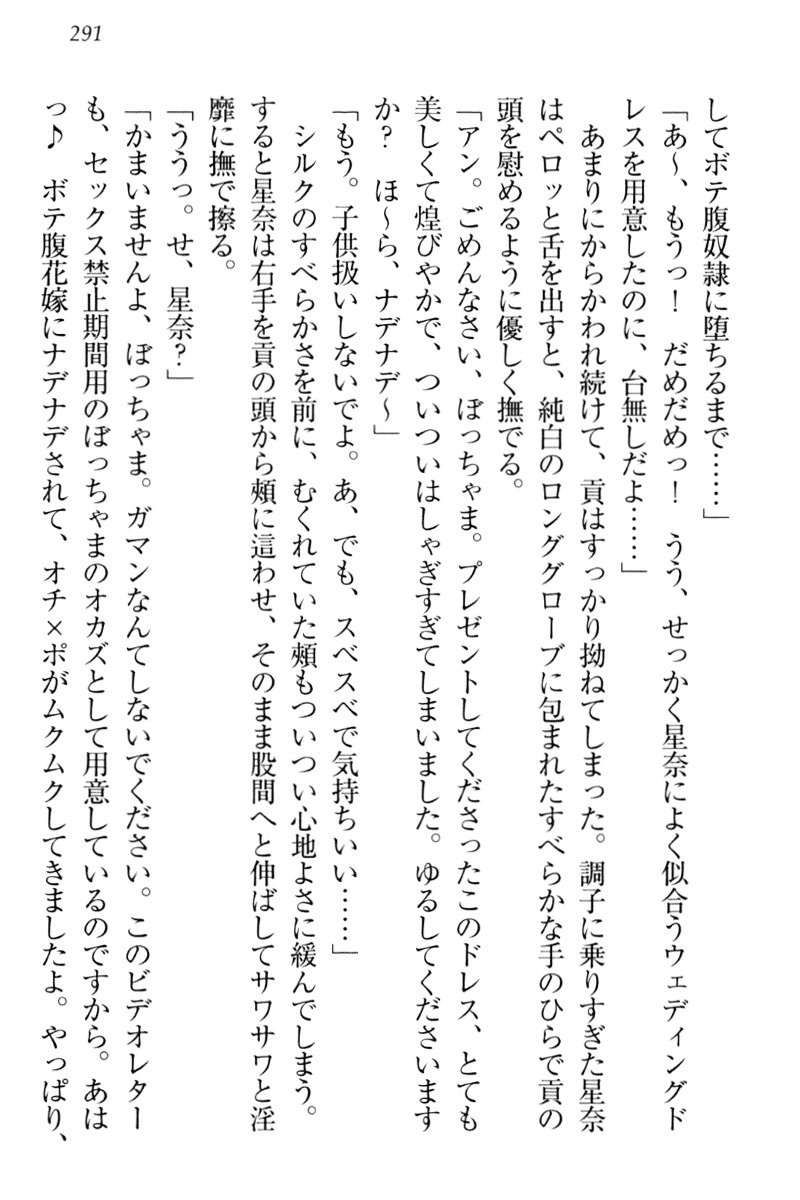 291
してボテ腹奴隷に堕ちるまで……」
「あ〜、もうっ！　だめだめっ！　うう、せっかく星奈によく似合うウェディングド
レスを用意したのに、台無しだよ……」
　あまりにからかわれ続けて、貢はすっかり拗ねてしまった。調子に乗りすぎた星奈
はペロッと舌を出すと、純白のロンググローブに包まれたすべらかな手のひらで貢の
頭を慰めるように優しく撫でる。
「アン。ごめんなさい、ぼっちゃま。プレゼントしてくださったこのドレス、とても
美しくて煌びやかで、ついついはしゃぎすぎてしまいました。ゆるしてくださいます
か？　ほ〜ら、ナデナデ〜」
「もう。子供扱いしないでよ。あ、でも、スベスベで気持ちいい……」
　シルクのすべらかさを前に、むくれていた頰もついつい心地よさに緩んでしまう。
すると星奈は右手を貢の頭から頰に這わせ、そのまま股間へと伸ばしてサワサワと淫
靡に撫で擦る。
「ううっ。せ、星奈？」
「かまいませんよ、ぼっちゃま。ガマンなんてしないでください。このビデオレター
も、セックス禁止期間用のぼっちゃまのオカズとして用意しているのですから。あは
っ♪　ボテ腹花嫁にナデナデされて、オチ×ポがムクムクしてきましたよ。やっぱり、